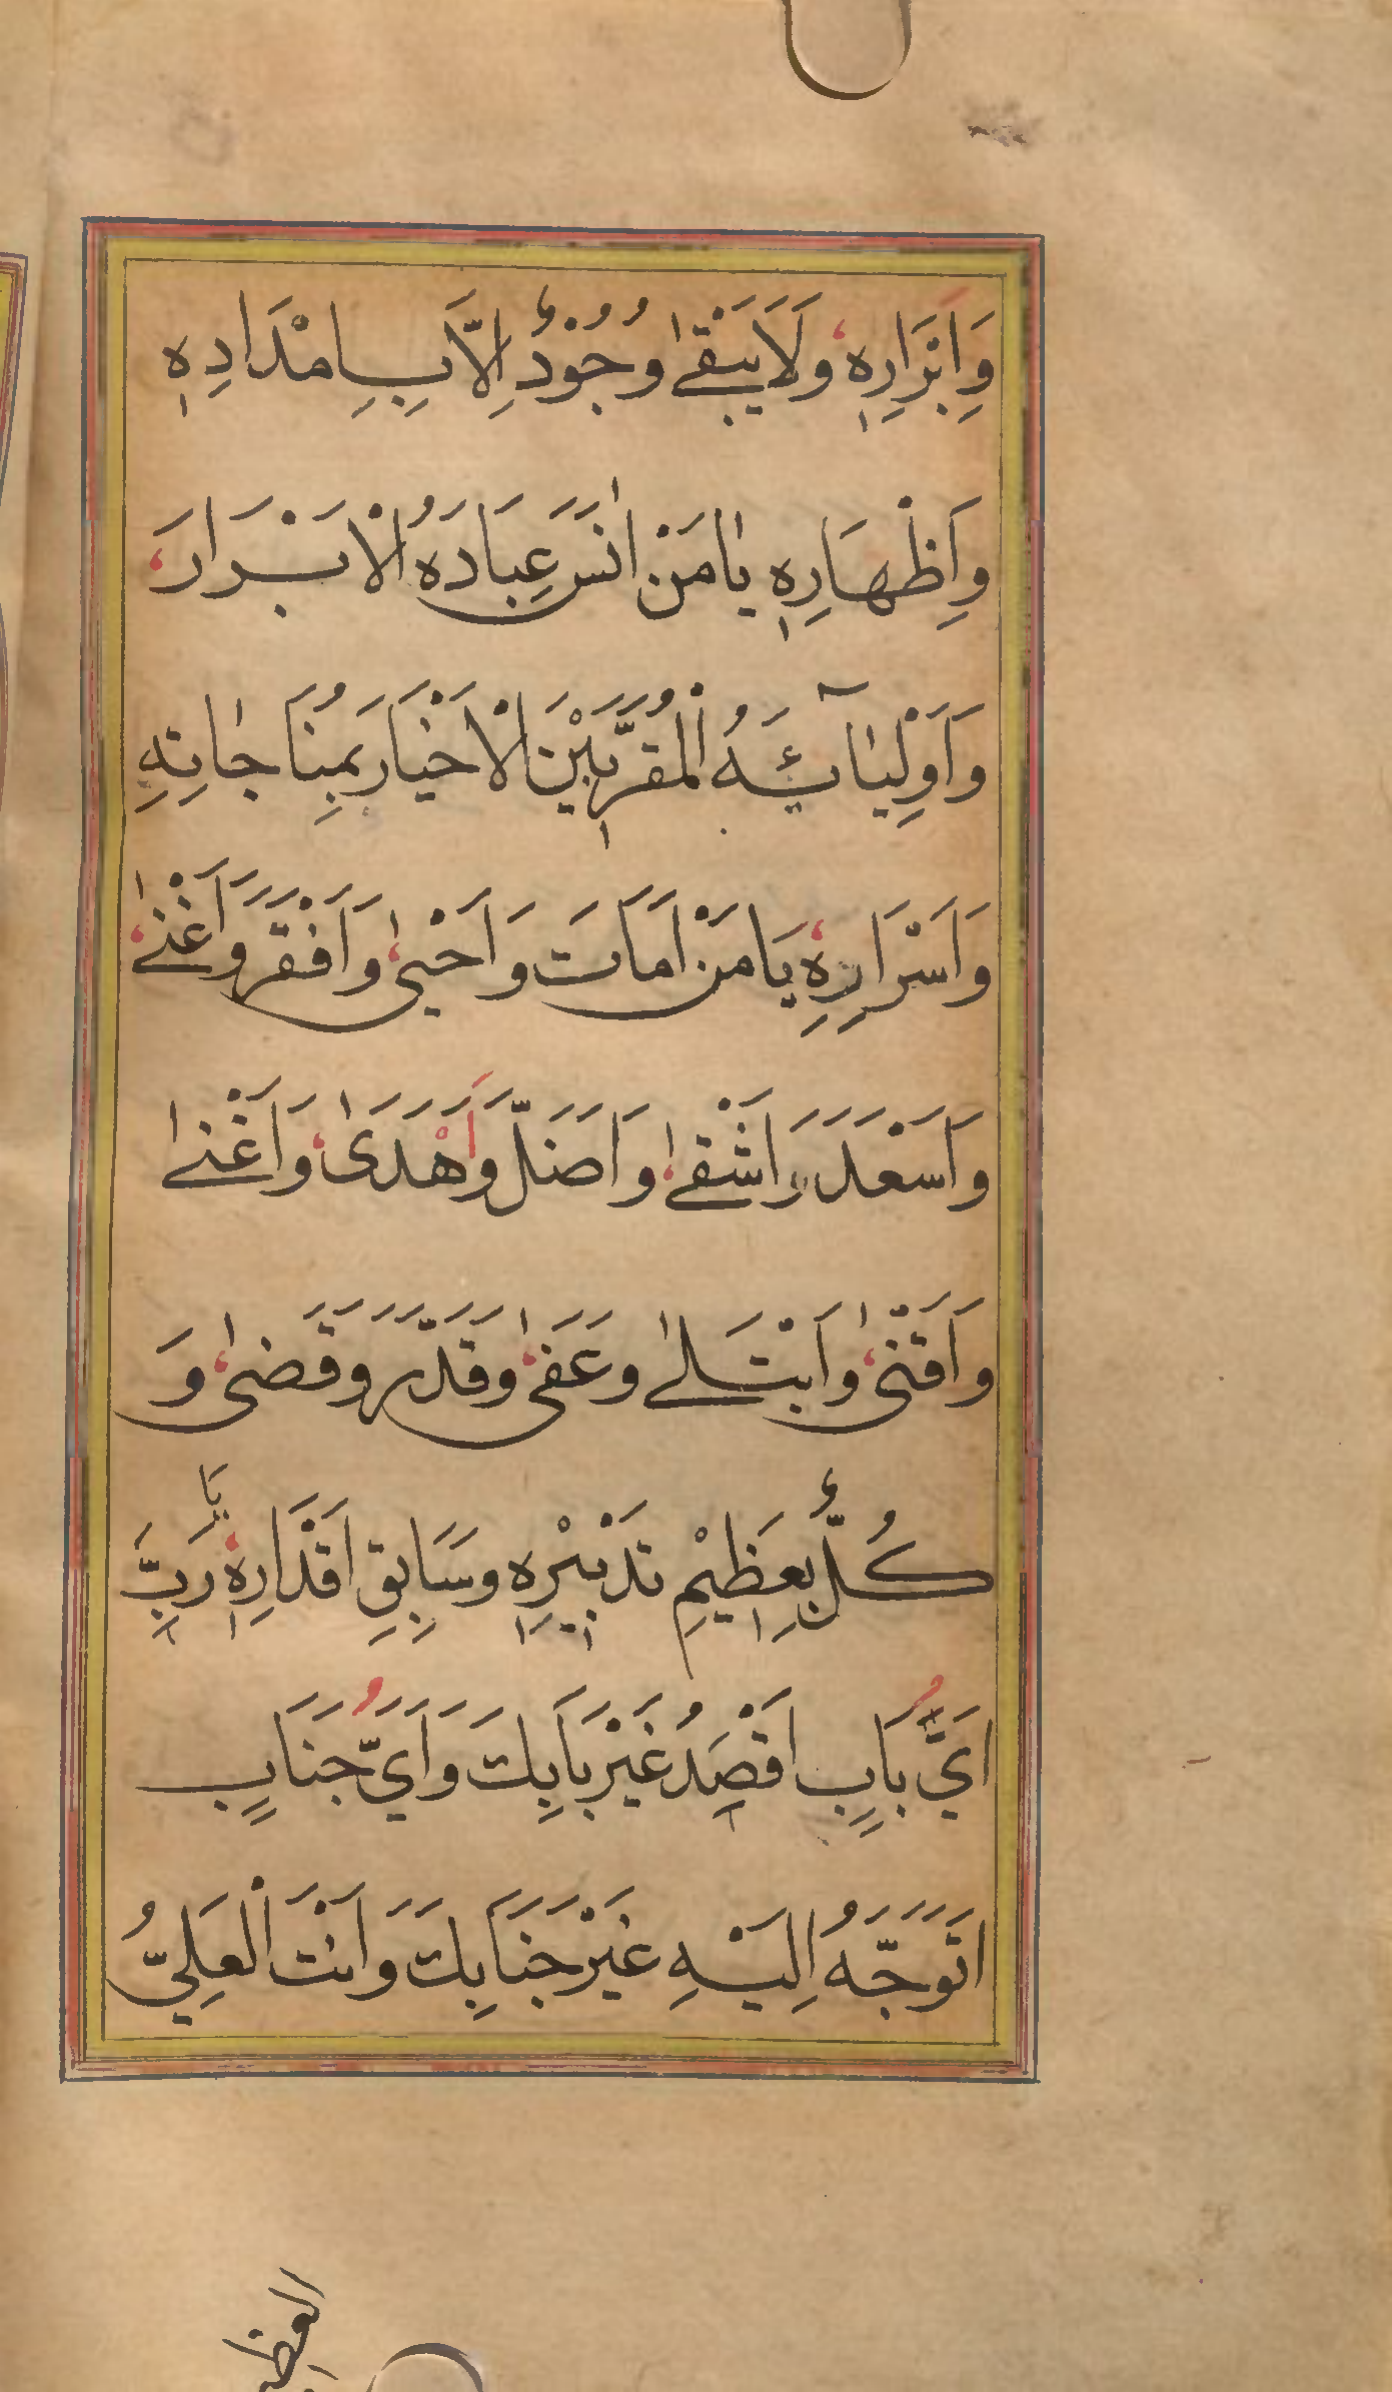 وَاِبْرَارِهٖ وَلَا يَبْقٰى وُجُوْدٌ اِلَّا بِاِمْدَادِهٖ
وَاِظْهَارِهٖ يٰا مَنْ اٰنَسَ عِبَادَهُ الْاَبْرَارَ
وَاَوْلِيٰآئَهُ الْمُقَرَّبِيْنَ الْاَخْيَارَ بِمُنَاجٰاتِهِ
وَاَسْرَارِهِ يَا مَنْ اَمَاتَ وَاَحْيٰى وَاَفْقَرَ وَاَغْنٰى
وَاَسْعَدَ وَاَشْقٰى وَاَضَلَّ وَاَهْدَىٰ وَاَغْنٰى
وَاَقْنٰى وَاَبْتَلٰى وَعَفٰى وَقَدَّرَ وَقَضٰى وَ
كُلٌّ بِعَظِيْمِ تَدْبِيْرِهِ وَسَابِقِ اَقْدَارِهٖ يَا رَبِّ
اَيَّ بَابٍ اَقْصِدُ غَيْرَ بَابِكَ وَاَيَّ جَنَابٍ
اَتَوَجَّهُ اِلَيْهِ غَيْرَ جَنَابِكَ وَاَنْتَ الْعَلِيُّ